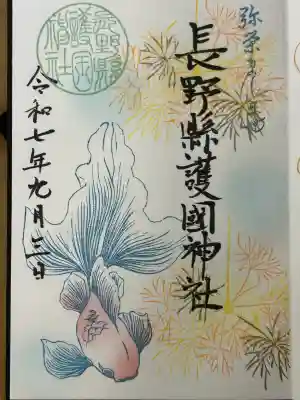 弥栄
長野縣護國神社
長野縣
護國
神社
令和七年九月三日